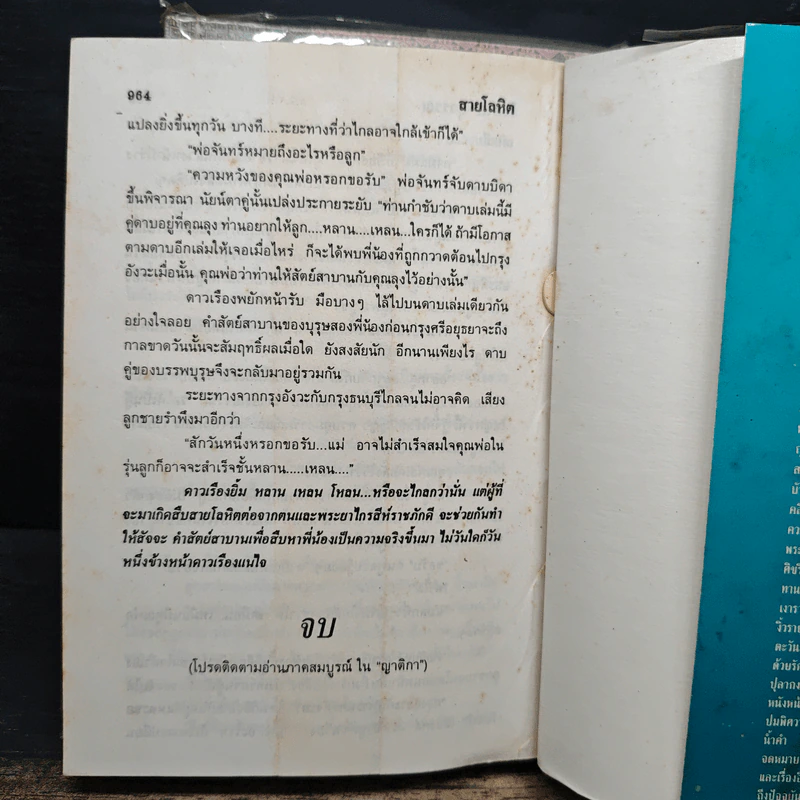 964
สายโลหิต
แปลงยิ่งขึ้นทุกวัน บางที....ระยะทางที่ว่าไกลอาจใกล้เข้าก็ได้"
"พ่อจันทร์หมายถึงอะไรหรือลูก"
"ความหวังของคุณพ่อหรอกขอรับ" พ่อจันทร์จับดาบบิดา
ขึ้นพิจารณา นัยน์ตาคู่นั้นเปล่งประกายระยับ "ท่านกำชับว่าดาบเล่มนี้มี
คู่ดาบอยู่ที่คุณลุง ท่านอยากให้ลูก....หลาน....เหลน...ใครก็ได้ ถ้ามีโอกาส
ตามดาบอีกเล่มให้เจอเมื่อไหร่ ก็จะได้พบพี่น้องที่ถูกกวาดต้อนไปกรุง
อังวะเมื่อนั้น คุณพ่อว่าท่านให้สัตย์สาบานกับคุณลุงไว้อย่างนั้น"
ดาวเรืองพยักหน้ารับ มือบางๆ ไล้ไปบนดาบเล่มเดียวกัน
อย่างใจลอย คำสัตย์สาบานของบุรุษสองพี่น้องก่อนกรุงศรีอยุธยาจะถึง
กาลขาดวันนั้นจะสัมฤทธิ์ผลเมื่อใด ยังสงสัยนัก อีกนานเพียงไร ดาบ
คู่ของบรรพบุรุษจึงจะกลับมาอยู่รวมกัน
ระยะทางจากกรุงอังวะกับกรุงธนบุรีไกลจนไม่อาจคิด เสียง
ลูกชายรำพึงมาอีกว่า
"สักวันหนึ่งหรอกขอรับ...แม่ อาจไม่สำเร็จสมใจคุณพ่อใน
รุ่นลูกก็อาจจะสำเร็จชั้นหลาน.....เหลน...."
ดาวเรืองยิ้ม หลาน เหลน โหลน...หรือจะไกลกว่านั่น แต่ผู้ที่
จะมาเกิดสืบสายโลหิตต่อจากตนและพระยาไกรสีห์ราชภักดี จะช่วยกันทำ
ให้สัจจะ คำสัตย์สาบานเพื่อสืบหาพี่น้องเป็นความจริงขึ้นมา ไม่วันใดก็วัน
หนึ่งข้างหน้าดาวเรืองแน่ใจ
จบ
(โปรดติดตามอ่านภาคสมบูรณ์ ใน "ญาติกา")
พระ
ทาน
เงารา
งิ้วราย
ตะวัน
ด้วยรัก
ปุลากง
หนังหน้
ปมพิศวา
น้ำคำ
จดหมาย
และเรื่องอื
ถึงปัจจุบัน